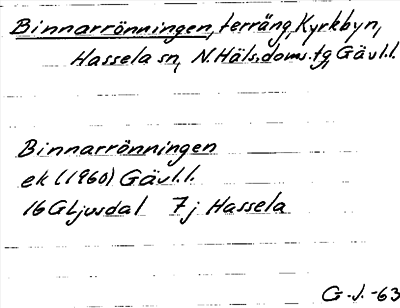 Binnarrönningen, terräng, Kyrkbyn,
Hassela sn, N. Häls. doms. tg, Gävl. l.
Binnarrönningen
ek (1960) Gävl. l.
16G Ljusdal 7j Hassela
G. J. -63